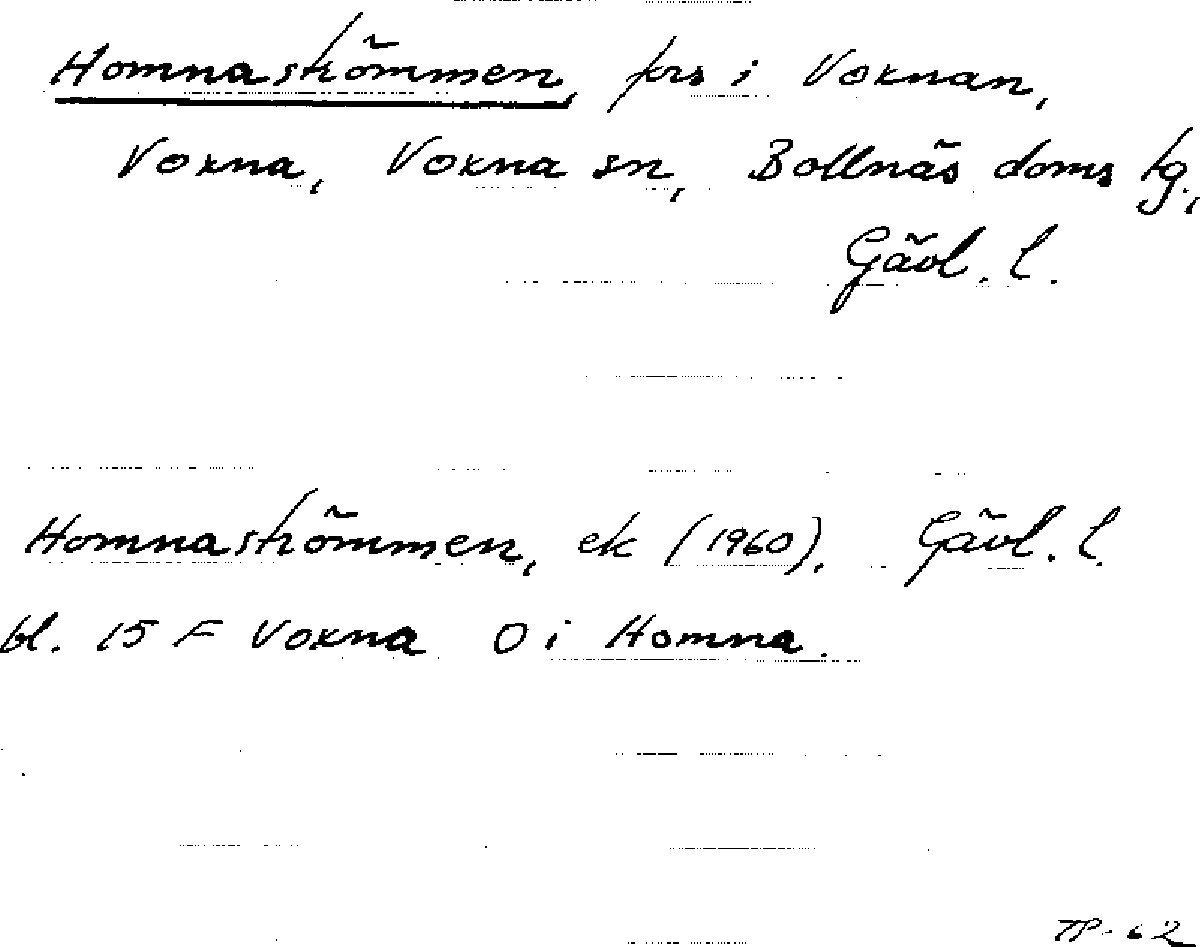 Homnaströmmen, frs i Voxnan,
Voxna, Voxna sn, Bollnäs doms tg,
Gävl. l.
Homnaströmmen, ek (1960). Gävl. l.
bl. 15 F Voxna O i Homna.
TP-62